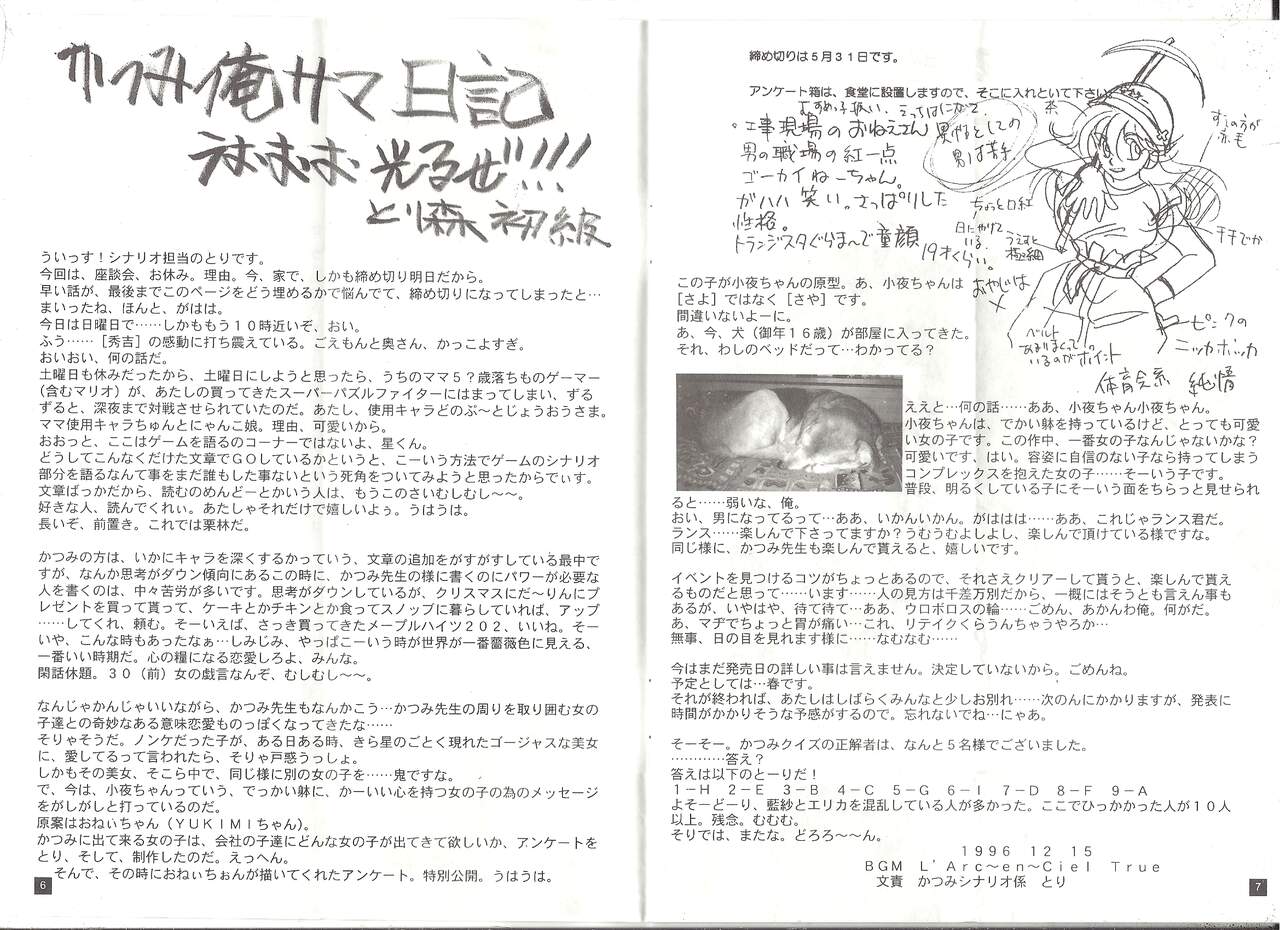 かつみ俺サマ日記
光るぜ!!!
とり森 初級
ういっす!シナリオ担当のとりです。
今回は、座談会、お休み。理由。今、家で、しかも締め切り明日だから。
早い話が、最後までこのページをどう埋めるかで悩んでて、締め切りになってしまったと…
まいったね、ほんと、がはは。
今日は日曜日で……しかももう10時近いぞ、おい。
ふう……[秀吉]の感動に打ち震えている。ごえもんと奥さん、かっこよすぎ。
おいおい、何の話だ。
土曜日も休みだったから、土曜日にしようと思ったら、うちのママ5?歳落ちものゲーマー
(含むマリオ)が、あたしの買ってきたスーパーパズルファイターにはまってしまい、ずる
ずると、深夜まで対戦させられていたのだ。あたし、使用キャラどのぶ~とじょうおうさま。
ママ使用キャラちゅんとにゃんこ娘。理由、可愛いから。
おおっと、ここはゲームを語るのコーナーではないよ、星くん。
どうしてこんなくだけた文章でGOしているかというと、こーいう方法でゲームのシナリオ
部分を語るなんて事をまだ誰もした事ないという死角をついてみようと思ったからでぃす。
文章ばっかだから、読むのめんどーとかいう人は、もうこのさいむしむし~~。
好きな人、読んでくれぃ。あたしゃそれだけで嬉しいよぅ。うはうは。
長いぞ、前置き。これでは栗林だ。
かつみの方は、いかにキャラを深くするかっていう、文章の追加をがすがすしている最中で
すが、なんか思考がダウン傾向にあるこの時に、かつみ先生の様に書くのにパワーが必要な
人を書くのは、中々苦労が多いです。思考がダウンしているが、クリスマスにだ~りんにプ
レゼントを買って貰って、ケーキとかチキンとか食ってスノッブに暮らしていれば、アップ
……してくれ、頼む。そーいえば、さっき買ってきたメープルハイツ202、いいね。そー
いや、こんな時もあったなぁ…しみじみ、やっぱこーいう時が世界が一番薔薇色に見える、
一番いい時期だ。心の糧になる恋愛しろよ、みんな。
閑話休題。30(前)女の戯言なんぞ、むしむし~~。
なんじゃかんじゃいいながら、かつみ先生もなんかこう…かつみ先生の周りを取り囲む女の
子達との奇妙なある意味恋愛ものっぽくなってきたな……
そりゃそうだ。ノンケだった子が、ある日ある時、きら星のごとく現れたゴージャスな美女
に、愛してるって言われたら、そりゃ戸惑うっしょ。
しかもその美女、そこら中で、同じ様に別の女の子を……鬼ですな。
で、今は、小夜ちゃんっていう、でっかい躰に、かーいい心を持つ女の子の為のメッセージ
をがしがしと打っているのだ。
原案はおねぃちゃん(YUKIMIちゃん)。
かつみに出て来る女の子は、会社の子達にどんな女の子が出てきて欲しいか、アンケートを
とり、そして、制作したのだ。えっへん。
そんで、その時におねぃちぉんが描いてくれたアンケート。特別公開。うはうは。
6
締め切りは5月31日です。
アンケート箱は、食堂に設置しますので、そこに入れといて下さい。
むすめっ子扱い、えっちはにがて
・工事現場のおねえさん
異性としての
男は苦手
男の職場の紅一点
ゴーカイねーちゃん。
ガハハ笑い。さっぱりした
性格。
トランジスタぐらま~で童顔
19才くらい。
茶
すこの方が
赤毛
ちょっと口紅
日にやけて
いる。
うえすと
極細
チチでか
おやじは
×
ベルト
あまりまくって
いるのがポイント
ピンクの
ニッカボッカ
体育会系 純情
この子が小夜ちゃんの原型。あ、小夜ちゃんは
[さよ]ではなく[さや]です。
間違いないよーに。
あ、今、犬(御年16歳)が部屋に入ってきた。
それ、わしのベッドだって…わかってる?
ええと…何の話……ああ、小夜ちゃん小夜ちゃん。
小夜ちゃんは、でかい躰を持っているけど、とっても可愛
い女の子です。この作中、一番女の子なんじゃないかな?
可愛いです、はい。容姿に自信のない子なら持ってしまう
コンプレックスを抱えた女の子……そーいう子です。
普段、明るくしている子にそーいう面をちらっと見せられ
ると……弱いな、俺。
おい、男になってるって…ああ、いかんいかん。がははは……ああ、これじゃランス君だ。
ランス……楽しんで下さってますか?うむうむよしよし、楽しんで頂けている様ですな。
同じ様に、かつみ先生も楽しんで貰えると、嬉しいです。
イベントを見つけるコツがちょっとあるので、それさえクリアーして貰うと、楽しんで貰え
るものだと思って……います……人の見方は千差万別だから、一概にはそうとも言えん事も
あるが、いやはや、待て待て…ああ、ウロボロスの輪……ごめん、あかんわ俺。何がだ。
あ、マヂでちょっと胃が痛い…これ、リテイクくらうんちゃうやろか…
無事、日の目を見れます様に……なむなむ……
今はまだ発売日の詳しい事は言えません。決定していないから。ごめんね。
予定としては…春です。
それが終われば、あたしはしばらくみんなと少しお別れ……次のんにかかりますが、発表に
時間がかかりそうな予感がするので。忘れないでね…にゃあ。
そーそー。かつみクイズの正解者は、なんと5名様でございました。
…………答え?
答えは以下のとーりだ!
1-H 2-E 3-B 4-C 5-G 6-I 7-D 8-F 9-A
よそーどーり、藍紗とエリカを混乱している人が多かった。ここでひっかかった人が10人
以上。残念。むむむ。
そりでは、またな。どろろ~~ん。
1996 12 15
BGM L'Arc~en~Ciel True
文責 かつみシナリオ係 とり
7